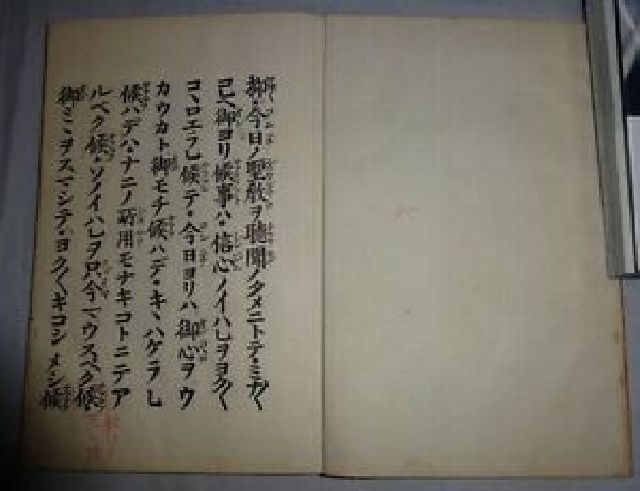 抑・今日ノ聖敎ヲ聽聞ノタメニトテ・ミナ〳〵
コレヘ御ヨリ候事ハ・信心ノイハレヲヨク〳〵
コヽロエラレ候テ・今日ヨリハ御心ヲウ
カウカト御モチ候ハデ・キヽハケラレ
候ハデハ・ナニノ所用モナキコトニテア
ルベク候・ソノイハレヲ只今マウスベク候・
御ミヽヲスマシテ・ヨク〳〵キコシメシ候